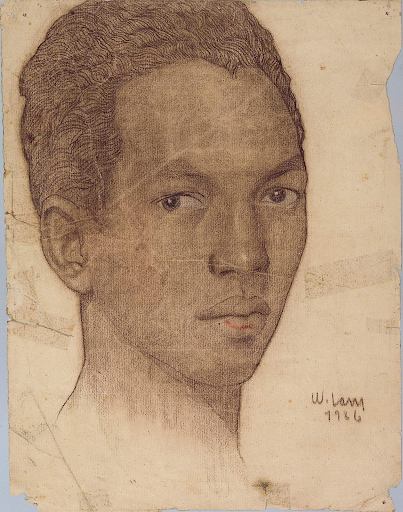 W. Lam
1926